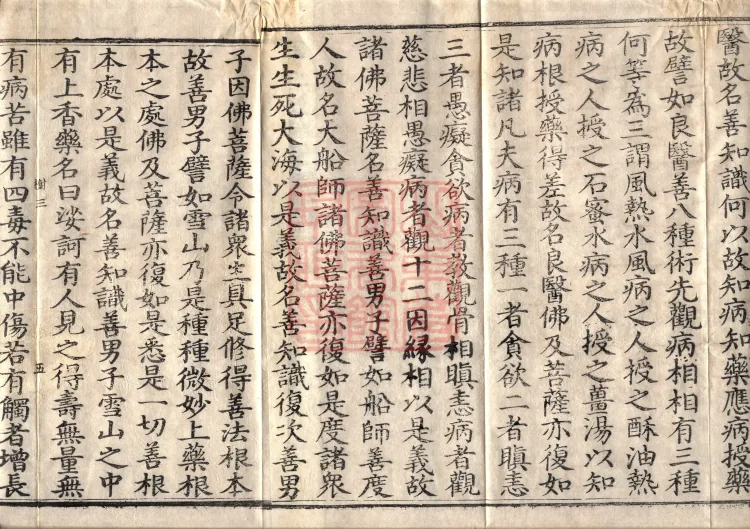 醫故名善知識何以故知病知藥應病授藥
故譬如良醫善八種術先觀病相相有三種
何等為三謂風熱水風病之人授之酥油熱
病之人授之石蜜水病之人授之薑湯以知
病根授藥得差故名良醫佛及菩薩亦復如
是知諸凡夫病有三種一者貪欲二者瞋恚
三者愚癡貪欲病者教觀骨相瞋恚病者觀
慈悲相愚癡病者觀十二因緣相以是義故
諸佛菩薩名善知識善男子譬如船師善度
人故名大船師諸佛菩薩亦復如是度諸眾
生生死大海以是義故名善知識復次善男
子因佛菩薩令諸眾生具足修得善法根本
故善男子譬如雪山乃是種種微妙上藥根
本之處佛及菩薩亦復如是悉是一切善根
本處以是義故名善知識善男子雪山之中
有上香藥名曰娑訶有人見之得壽無量無
有病苦雖有四毒不能中傷若有觸者增長
樹三
五